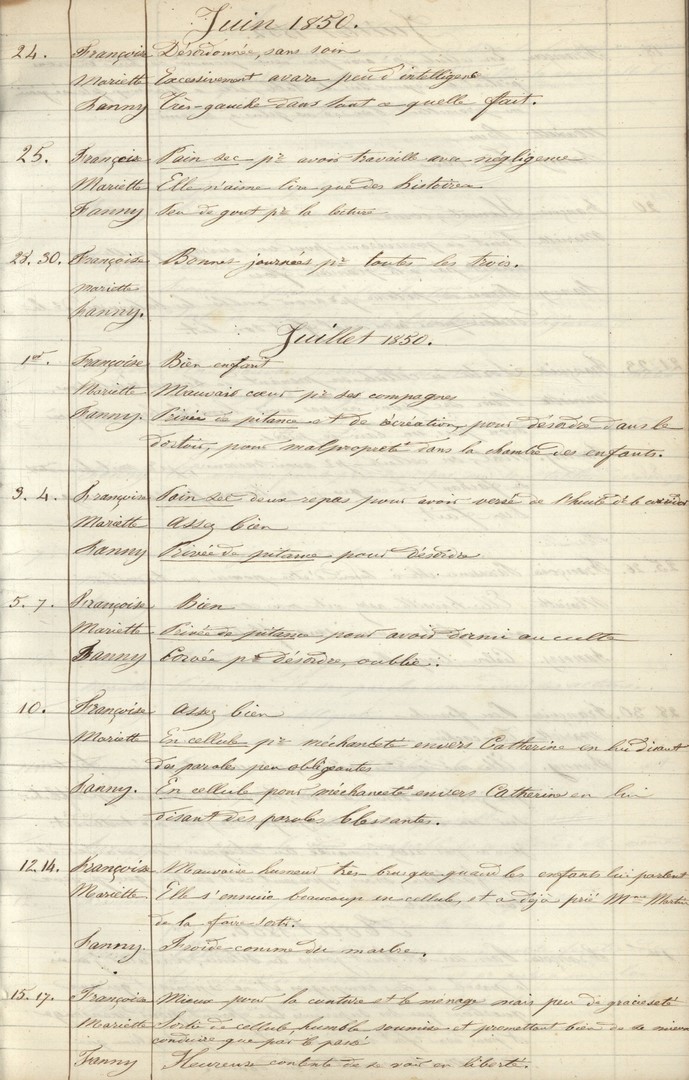 Juin 1850.
24. Françoise Désordonnée, sans soin
Mariette Excessivement avare peu d'intelligence
Fanny Très-gauche dans tout ce quelle fait.
25. Françoise Pain sec pr avoir travaillé avec négligence
Mariette Elle n'aime lire que des histoires
Fanny Peu de gout pr la lecture
28. 30. Françoise Bonnes journées pr toutes les trois.
Mariette
Fanny.
Juillet 1850.
1er. Françoise Bien enfant
Mariette Mauvais cœur pr ses compagnes
Fanny. Privée de pitance et de récréation, pour désordre dans le
dortoir, pour malpropreté dans la chambre des enfants.
3. 4. Françoise Pain sec deux repas pour avoir versé de l'huile de
Mariette Assez bien
Fanny Privée de pitance pour désordre
5. 7. Françoise Bien
Mariette Privée de pitance pour avoir dormi au culte
Fanny Corvée pr désordre, oublie.
10. Françoise Assez bien
Mariette En cellule pr méchanceté envers Catherine en lui disant
des paroles peu obligeantes
Fanny. En cellule pour méchanceté envers Catherine en lui
disant des paroles blessantes.
12. 14. Françoise Mauvaise humeur très brusque quand les enfants lui parlent
Mariette. Elle s'ennuie beaucoup en cellule, et a déjà prié Mme Martin
de la faire sortir.
Fanny. Froide comme du marbre.
15. 17. Françoise Mieux pour la couture et le ménage mais peu de gracieuseté
Mariette Sortie de cellule, humble soumise et promettant bien de se mieux
conduire que par le passé
Fanny Heureuse contente de se voir en liberté.